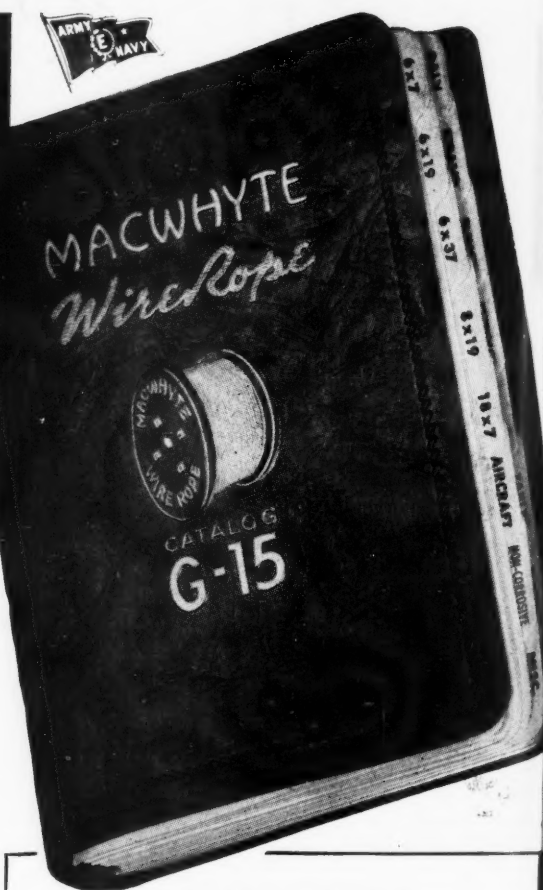 ARMY E NAVY
MACWHYTE
Wire Rope
MACWHYTE
WIRE ROPE
CATALOG
G-15
6x7
6x19
6x37
8x19
18x7
AIRCRAFT
NON-CORROSIVE
MISC.